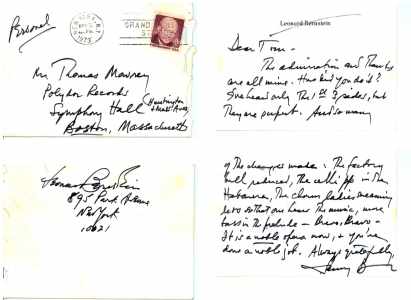 Personal
NEW YORK, N.Y.
1973
GRAND
Mr Thomas Mowrey
Polydor Records
Symphony Hall (Huntington
+ Mass. Aves)
Boston, Massachusetts
Leonard Bernstein
Dear Tom -
The admiration and thanks
are all mine. How kind you do it?
I've heard only the 1st 3 sides, but
they are perfect. And so many
of the changes made: the factory
bell reduced, the celli up in the
Habanera, the chorus ladies screaming
less so that one hears the music, more
bass in the prelude - Bravo, Bravo -
It is a noble opera now, & you've
done a noble job. Always gratefully,
Lenny B
Leonard Bernstein
895 Park Avenue
New York
10021